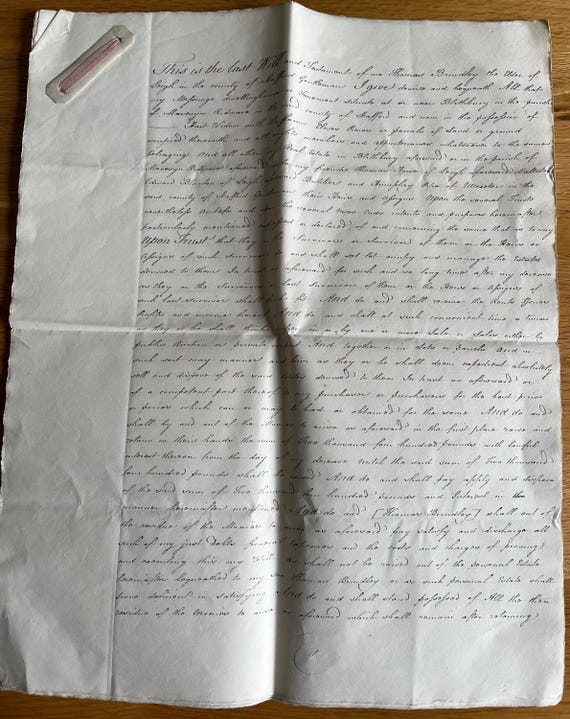 This is the last Will and Testament of me Thomas Brindley the Elder of
Leigh in the county of Stafford Gentleman I give devise and bequeath All that
my Messuage dwellinghouse or Tenement situate at or near Blithbury in the parish
of Mavesyn Ridware in the said county of Stafford and now in the possession of
Hart Widow with the Three Pieces or parcels of Land or ground
thereunto and all rights members and appurtenances whatsoever to the same
belonging And all other my Real Estate in Blithbury aforesaid or in the parish of
Mavesyn Ridware aforesaid my friends Thomas of Leigh aforesaid
Edward Blurton of Leigh aforesaid Butcher and Humphry of Uttoxeter in the
said county of Stafford Gentleman their Heirs and Assigns Upon the several Trusts
nevertheless and for the several uses ends intents and purposes hereinafter
particularly mentioned expressed or declared of and concerning the same that is to say
Upon Trust that they the Survivors or Survivor of them or the Heirs or
Assigns of such Survivor do and shall set let and manage the Estates
devised to them In trust as aforesaid for such and so long time after my decease
as they or the Survivors or last Survivor of them or the Heirs or Assigns of
such last Survivor shall think fit And do and shall receive the Rents Issues
Profits and thereof And do and shall at such convenient time or times
as they or he shall think in or by one or more Sale or Sales either by
public Auction or private And together or in Lots or Parcels And in
such sort way manner and form as they or he shall deem expedient absolutely
sell and dispose of the said Estates devised to them In trust as aforesaid or
of a competent part thereof to any purchaser or purchasers for the best price
or prices which can or may be had or obtained for the same And do and
shall by and out of the Monies to arise as aforesaid in the first place raise and
retain in their hands the sum of Two thousand four hundred pounds with lawful
interest thereon from the day of my decease until the said sum of Two thousand
four hundred pounds shall be raised And do and shall pay apply and dispose
of the said sum of Two thousand four hundred pounds and Interest in the
manner hereinafter mentioned And do and [Thomas Brindley] shall out of
the residue of the Monies to arise as aforesaid pay satisfy and discharge all
such of my just Debts funeral expences and the costs and charges of proving
and executing this my Will as shall not be raised out of the personal Estate
hereinafter bequeathed to my son Thomas Brindley or as such personal Estate shall
prove deficient in satisfying And do and shall stand possessed of All the then
residue of the Monies to arise as aforesaid which shall remain after retaining